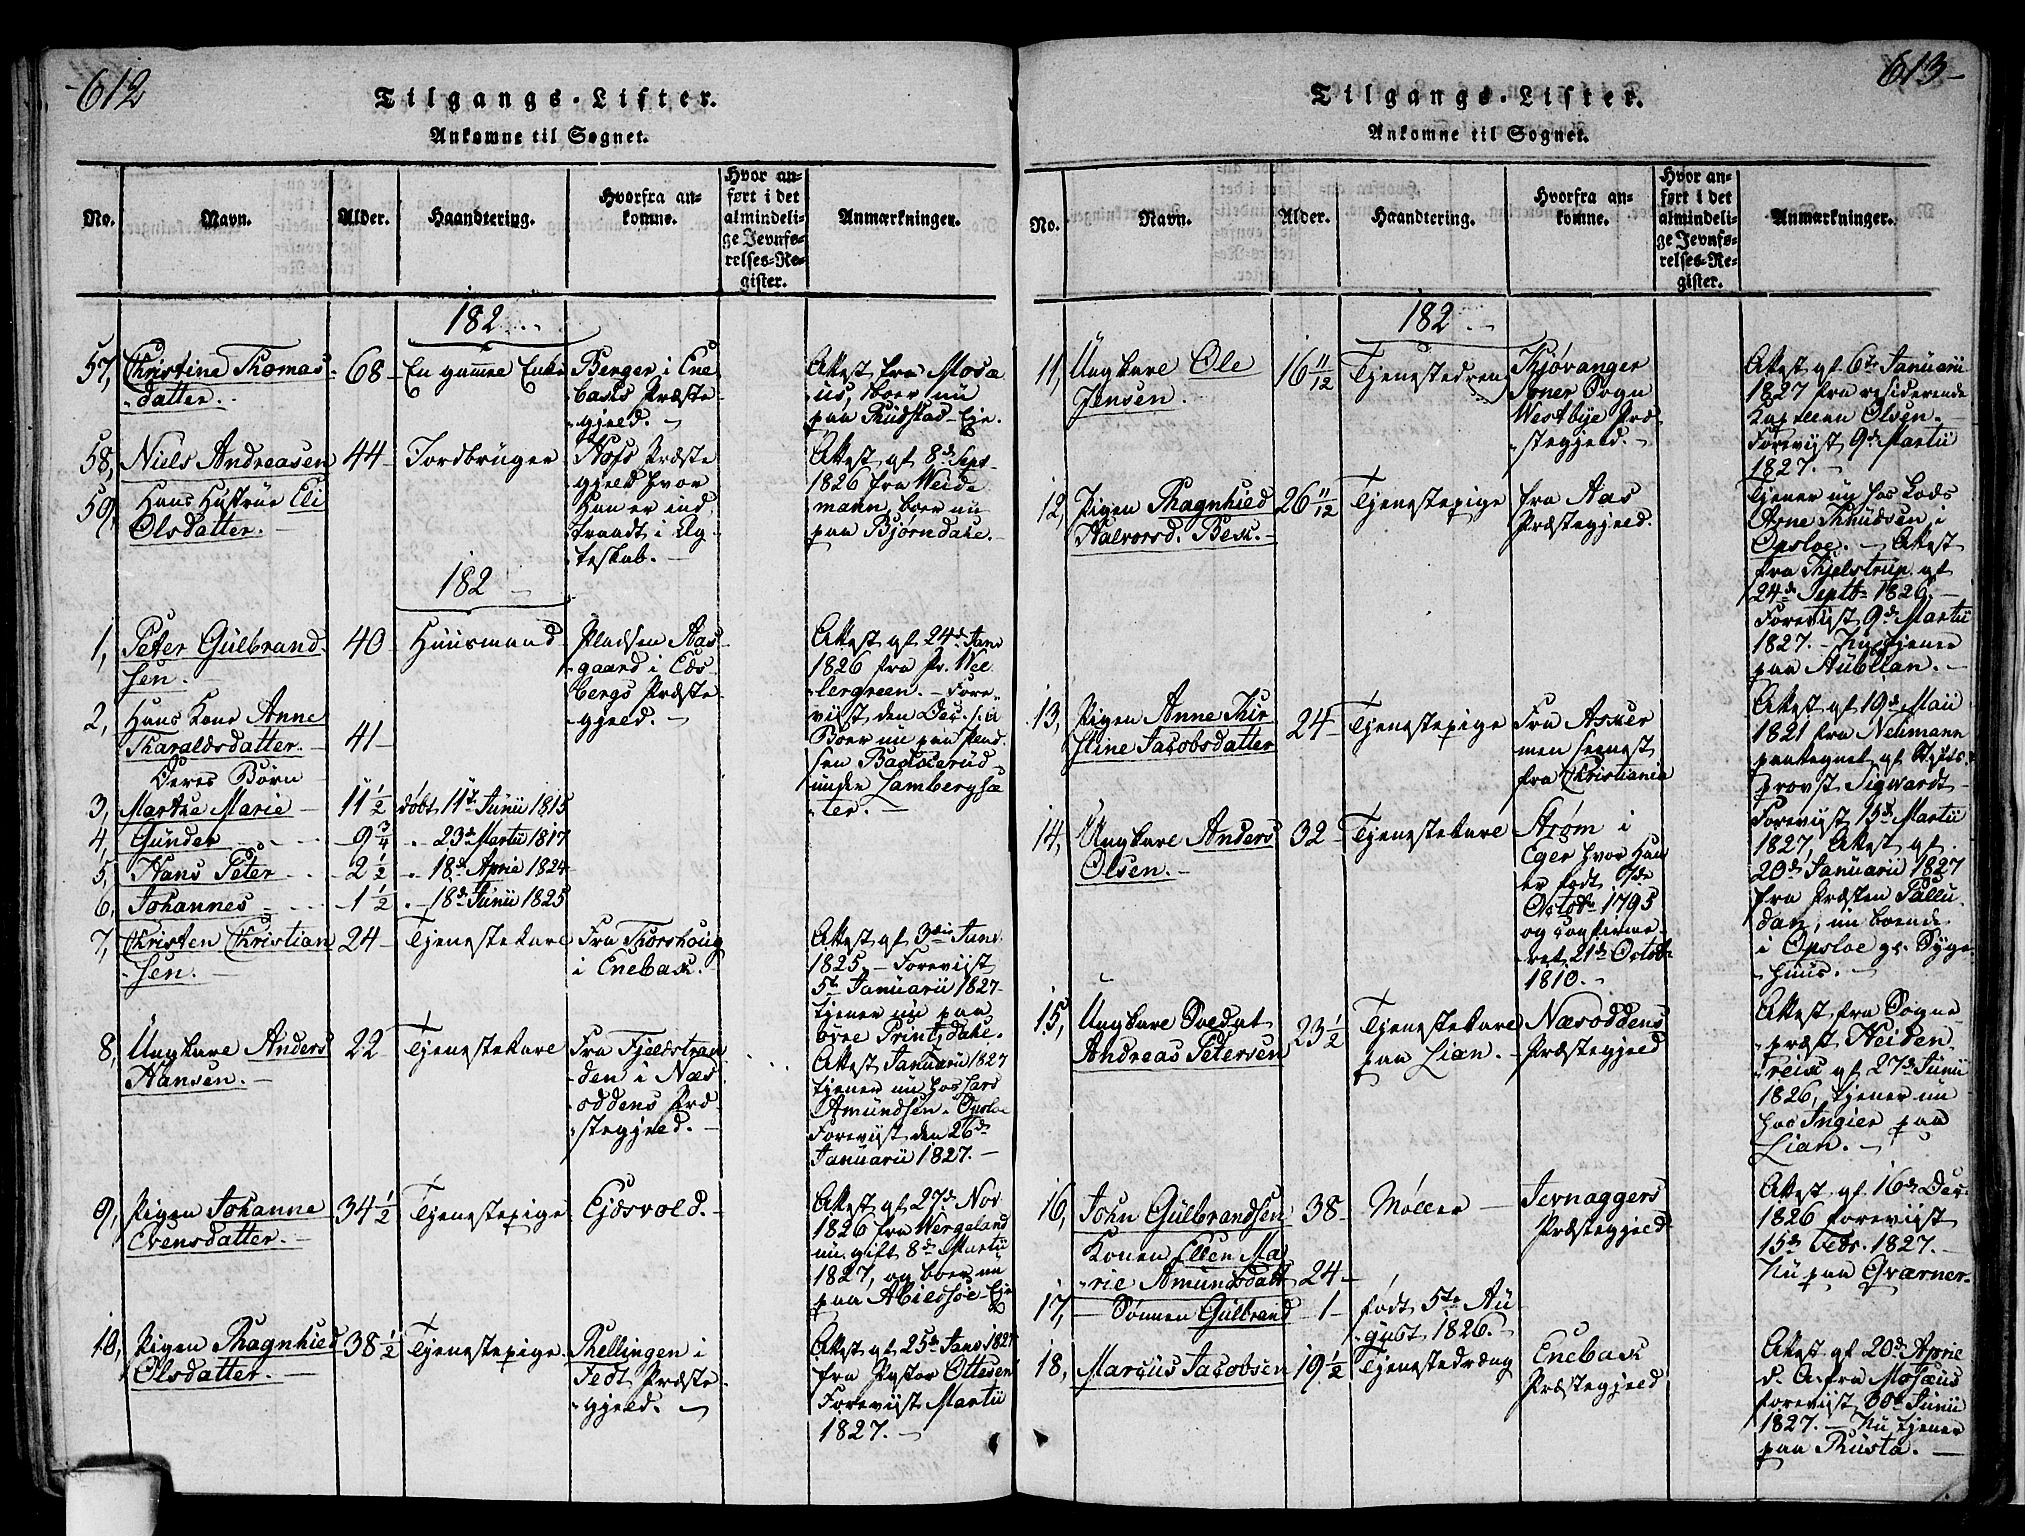 -612
Tilgangs-Lister.
Ankomne til Sognet.
No.
Navn.
Alder.
Haandtering.
Hvorfra an-
komne.
Hvor an-
ført i det
almindeli-
ge Jevnfø-
relses-Re-
gister.
Anmærkninger.
182
57, Christine Thomas-
datter.
68
En gammel Enke
Berger i Ene
baks Præste-
gjeld.
Attest fra Mosæ
us, boer nu
paa Rudstad-Eje.
58, Niels Andreasen
44
Jordbruger
Hofs Præste
gjeld hvor
Han er ind
traadt i Æg-
teskab.
Attest af 8de Sept
1826 fra Weide
mann, boer nu
paa Bjørndale.
59, Hans Hustrue Eli
Olsdatter.
182
1, Peter Gulbrand-
sen.
40
Huusmand
Pladsen Aas-
gaard i Eds-
bergs Præste-
gjeld.
Attest af 24de Jan
1826 fra Pr. Wel
lergreen. Fore-
viist den Dec.
Boer nu paa Plad-
sen Bakkerud
under Lambergsæ
ter.
2, Hans Kone Anne
Tharaldsdatter.
41
Deres Børn
3, Marthe Marie
11 1/2
døbt 11te Junii 1815
4, Gunder
9 3/4
23de Martii 1817
5, Hans Peter
2 1/2
18de April 1824
6, Johannes
1 1/2
18de Junii 1825
7, Christen Christian
sen.
24
Tjenestekarl
Fra Thorshoug
i Enebak.
Attest af 3die Juni
1825. Foreviist
5te Januarii 1827
tjener nu paa
øvre Printzdahl.
8, Ungkarl Anders
Hansen.
22
Tjenestekarl
Fra Fjeldstran
den i Næs
oddens Præ-
stegjeld.
Attest Januarii 1827
tjener nu hos Lars
Amundsen. Opsloe
Foreviist den 26de
Januarii 1827.
9, Pigen Johanne
Evensdatter.
34 1/2
Tjenestepige
Ejdsvold.
Attest af 27de Nov
1826 fra Wergeland
nu gift 8de Martii
1827, og boer nu
paa Abildsøe-Eje
10, Pigen Ragnhild
Olsdatter.
38 1/2
Tjenestepige.
Kellingen i
Fedt Præste-
gjeld.
Attest af 25de Jan 1827
fra Pastor Ottesen
Foreviist Martii
1827.
613-
Tilgangs-Lister.
Ankomne til Sognet.
No.
Navn.
Alder.
Haandtering.
Hvorfra an-
komne.
Hvor an-
ført i det
almindeli-
ge Jevnfø-
relses-Re-
gister.
Anmærkninger.
182
11, Ungkarl Ole
Jensen.
16 11/12
Tjenestedreng
Kjøvanger
Soner Sogn
Westbye Præ-
stegjeld.
Attest af 6te Januarii
1827 fra residerende
Kapellan Olsen.
Foreviist 9de Martii
1827.
12, Pigen Ragnhild
Halvorsd. Bek.
26 11/12
Tjenestepige
fra Aas
Præstegjeld.
Tjener nu hos Lods
Arne Knudsen i
Opsloe. Attest
fra Kjelstrup af
24de Septb 1826.
Foreviist 9de Martii
1827. Nu tjener
paa Aublian.
13, Pigen Anne Kir
stine Jacobsdatter
24
Tjenestepige
Fra Asker
men seenest
fra Christiania
Attest af 19de Maii
1821 fra Neumann
paategnet af Stifts-
provst Sigwardt
Foreviist 15de Martii
1827,
14, Ungkarl Anders
Olsen.
32
Tjenestekarl
Strøm i
Eger hvor Han
er født 7de
Octob 1795
og confirme-
ret 21de Octob
1810.
Attest af
20de Januarii 1827
fra Præsten Pallu-
dan, nu boende
i Opsloe gl. Syge-
huus.
15, Ungkarl Soldat
Andreas Petersen
23 1/2
Tjenestekarl
paa Lian.
Næsoddens
Præstegjeld
Attest fra Sogne-
præst Heiden
reich af 27de Junii
1826, tjener nu
hos Ingier paa
Lian.
16, John Gulbrandsen
38
Møller
Jevnaggers
Præstegjeld
Attest af 16de Dec.
1826 foreviist
15de Febr. 1827.
Nu paa Qværner-
Konen Ellen Ma
rie Amundsdatt
24
17, Sønnen Gulbrand
1
født 5te Au
gust 1826.
18, Marcus Jacobsen
19 1/2
Tjenestedræng
Enebak
Præstegjeld
Attest af 20de April
d. A. fra Mosæus
foreviist 30te Junii
1827. Nu tjener
paa Rusta.